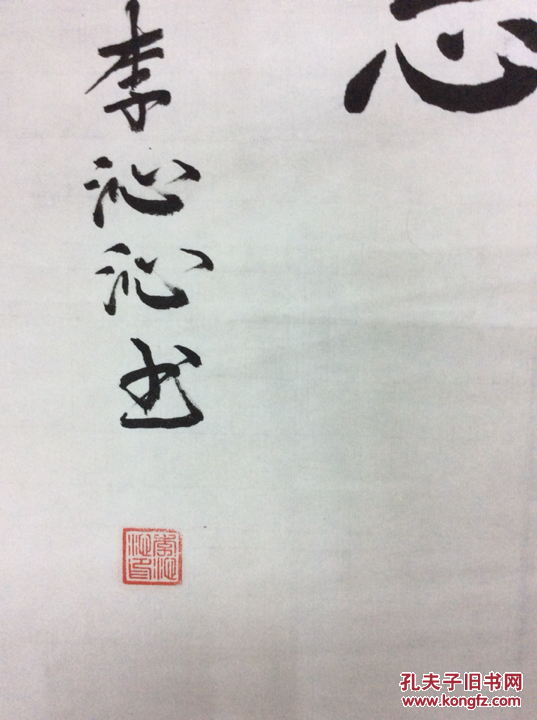 李沁沁书
李沁沁印
孔夫子旧书网
www.kongfz.com